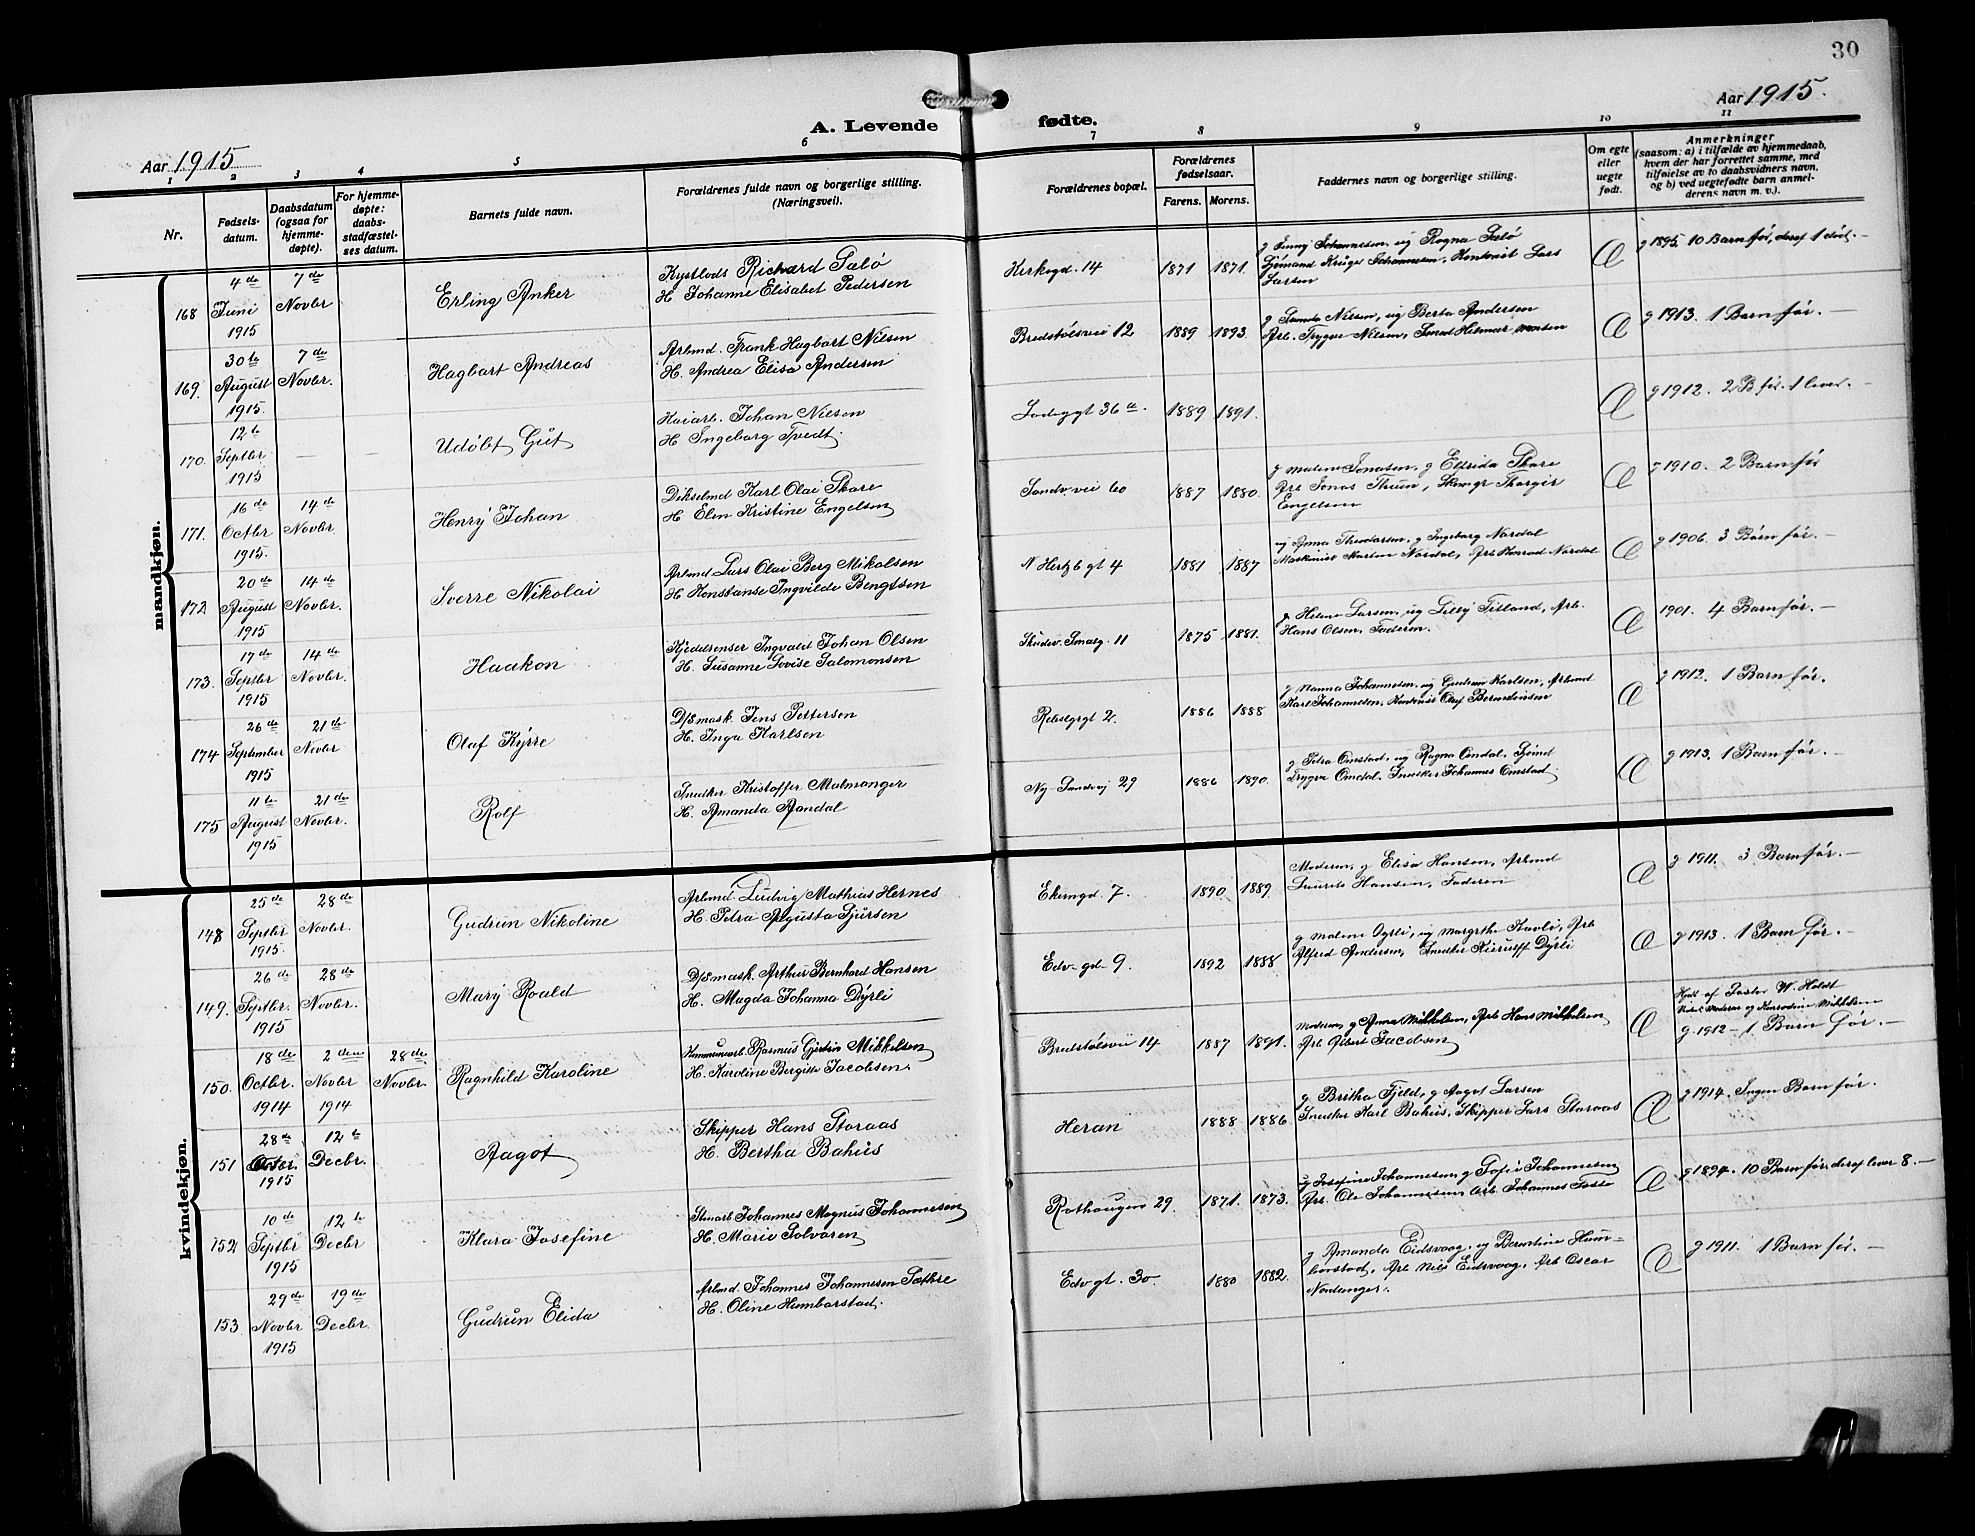 30
Aar 1915.
A. Levende
fødte.
Aar 1915
1 2 3 4 5 6
7 8 9 10 11
Nr.
Fødsels-
datum.
Daabsdatum
(ogsaa for
hjemme-
døpte).
For hjemme-
døpte:
daabs-
stadfæstel-
ses datum.
Barnets fulde navn.
Forældrenes fulde navn og borgerlige stilling.
(Næringsvei).
Forældrenes bopæl.
Forældrenes
fødselsaar.
Farens. Morens.
Faddernes navn og borgerlige stilling.
Om egte
eller
uegte
født.
Anmerkninger
(saasom: a) i tilfælde av hjemmedaab,
hvem der har forrettet samme, med
tilføielse av to daabsvidners navn,
og b) ved uegtefødte barn anmel-
derens navn m. v.).
mandkjøn.
168 4de Juni 1915 7de Novbr
Erling Anker
Kystlods Richard Salø
H Johanne Elisabet Pedersen
Kirkegd. 14 1871 1871.
g Jenny Johannesen, ug Ragna Salø
Sjømand Krüger Johannesen, Kontorist Lars
Larsen
Æ g 1895 10 Barn før, deraf 1 død. -
169. 30te August 1915. 7de Novbr.
Hagbart Andreas
Arbmd. Frank Hagbart Nilsen
H. Andrea Elisa Andersen
Bredstølsvei 12 1889 1893.
Nilsen, ug Berta Andersen
Arb. Trygve Nilsen, Smed Hilmar
Æ g 1913. 1 Barn før. -
170. 12te Septbr 1915 - -
Udøbt Gut
Johan Nilsen
H Ingeborg Tvedt.
Ladeggt 36a. 1889 1891.
Æ g 1912. 2 B før. 1 lever. -
171. 16de Octbr 1915. 14de Novbr
Henry Johan
Karl Olai Skare
H Elen Kristine Engelsen
Sandv. vei 60 1887 1880.
g Malene Jonasen, g Elfrida Skare
Arb Jonas Thuen, Thorgir
Engelsen
Æ g 1910. 2 Barn før
172 20de August 1915 14de Novbr.
Sverre Nikolai
Arbmd Lars Olai Berg Mikalsen
H Konstanse Ingvilde Bengtsen
N Hertzb gt 4 1881 1887
ug Anna Theodorsen, g Ingeborg Nordal
Maskinist Morten Nordal, Arb Konrad Nordal
Æ g 1906. 3 Børn før. -
173. 17de Septbr 1915 14de Novbr.
Haakon
Kjedelrenser Ingvald Johan Olsen
H. Susanne Lovise Salomonsen
Skudev. Smalg. 11 1875 1881.
g Helene Larsen, ug Lilly Tilland, Arb.
Hans Olsen, Faderen.
Æ 1901. 4 Barn før. -
174 26de September 1915 21de Novbr
Olaf Kyrre
D/S mask. Jens Pettersen
H. Inga Karlsen
Rebslgrgt 2. 1886 1888
g Nanna Johannesen, ug Gudrun Karlsen, Arbmd
Karl Johannesen, Kontorist Olaf Berntsen
Æ g 1912. 1 Barn før.
175 11te August 1915 21de Novbr.
Rolf
Snedker Kristoffer Malmanger
H. Amanda Aandal
Ny-Sandvej 29 1886 1890.
g Petra Omstad, ug Ragna Omdal, Sjømd
Trygve Omdal, Snedker Johannes Omstad.
Æ g 1913. 1 Barn før. -
kvindekjøn.
148 25de Septbr 1915. 28de Novbr.
Gudrun Nikoline
Arbmd Ludvig Mathias Hernes
H. Petra Agusta Sjursen
Ekerngd. 7. 1890 1889.
Moderen, g Elisa Hansen, Arbmd
Laurits Hansen, Faderen
Æ g 1911. 3 Barn før. -
149. 26de Septbr. 1915 28de Novbr.
Mary Roald
D/S mask. Arthur Bernhard Hansen
H. Magda Johanna Dyrli
Edv-gd. 9. 1892 1888
g Malene Dyrli, ug Margrethe Kavli, Arb
Alfred Andersen, Snedker Dyrli
Æ g 1913. 1 Barn før. -
150. 18de Octbr. 1914 2den Novbr 1914 28de Novbr.
Ragnhild Karoline
Kommunearb. Rasmus Mikkelsen
H. Karoline Bergitte Jacobsen.
Bredstølsvei 14 1887 1891.
Moderen, g Anna Mikkelsen, Arb Hans Mikkelsen
Arb Albert Jacobsen
Æ Hjdb af Pastor W. Holdt
Vidn. Moderen og Mikkelsen
g. 1912 - 1 Barn før. -
151 28de Octbr. 1915 12te Decbr.
Aagot
Skipper Hans Storaas
H. Bertha Bahus
Heran 1888 1886
g Britha Fjeld, g Aagot Larsen
Snedker Karl Bahus, Skipper Lars Storaas
Æ g 1914. Ingen Barn før.
152 10de Septbr 1915 12te Decbr
Klara Josefine
Stenarb Johannes Magnus Johannesen
H. Marie Solvaren
Rothaugen 29. 1871. 1873.
ug Josefine Johannesen, g Sofie Johannesen
Arb. Ole Johannesen, Arb. Johannes
Æ g 1894. 10 Barn før, deraf lever 8. -
153. 29de Novbr 1915 19de Decbr.
Gudrun Elida
Arbmd Johannes Johannesen Sæthre
H. Oline Humborstad.
Edv gt. 30. 1880 1882.
g Amanda Eidsvaag, ug Berntine Hum-
borstad, Arb Nils Eidsvaag, Arb Oscar
Nordanger.
Æ g 1911. 1 Barn før. -